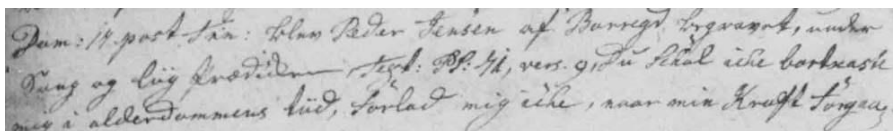 Dom: 14. post Trin: blev Peder Jensen af Borregd. begravet, under
Sang og liig Prædiken Text: Ps: 71, vers. 9, Du skal icke bortkaste
mig i alderdommens tiid, Forlad mig icke, naar min Kraft forgaar,